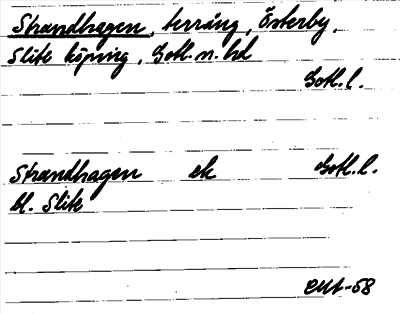 Strandhagen, terräng, Österby,
Slite köping, Gotl. n. hd
Gotl. l.
Strandhagen ek Gotl. l.
bl. Slite
-58